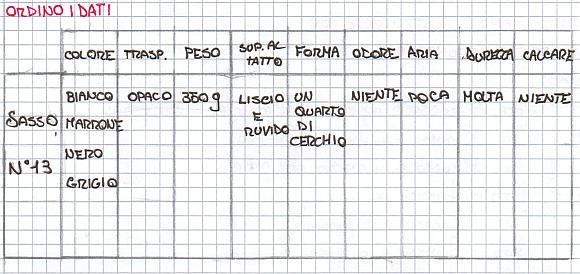 ORDINO I DATI
COLORE TRASP. PESO SUP. AL TATTO FORMA ODORE ARIA DUREZZA CALCARE
SASSO N°13
BIANCO MARRONE NERO GRIGIO
OPACO
350g
LISCIO E RUVIDO
UN QUARTO DI CERCHIO
NIENTE
POCA
MOLTA
NIENTE